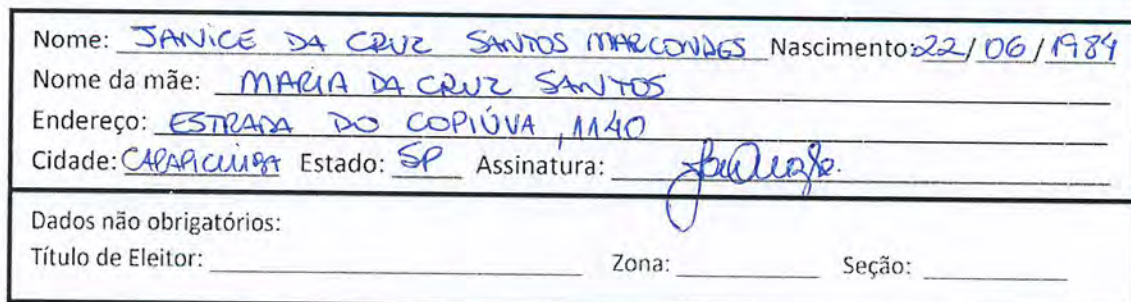 Nome: JANICE DA CRUZ SANTOS MARCONDES Nascimento: 22/06/1984
Nome da mãe: MARIA DA CRUZ SANTOS
Endereço: ESTRADA DO COPIÚVA, 1140
Cidade: CARAPICUIBA Estado: SP Assinatura:
Dados não obrigatórios:
Título de Eleitor: Zona: Seção: